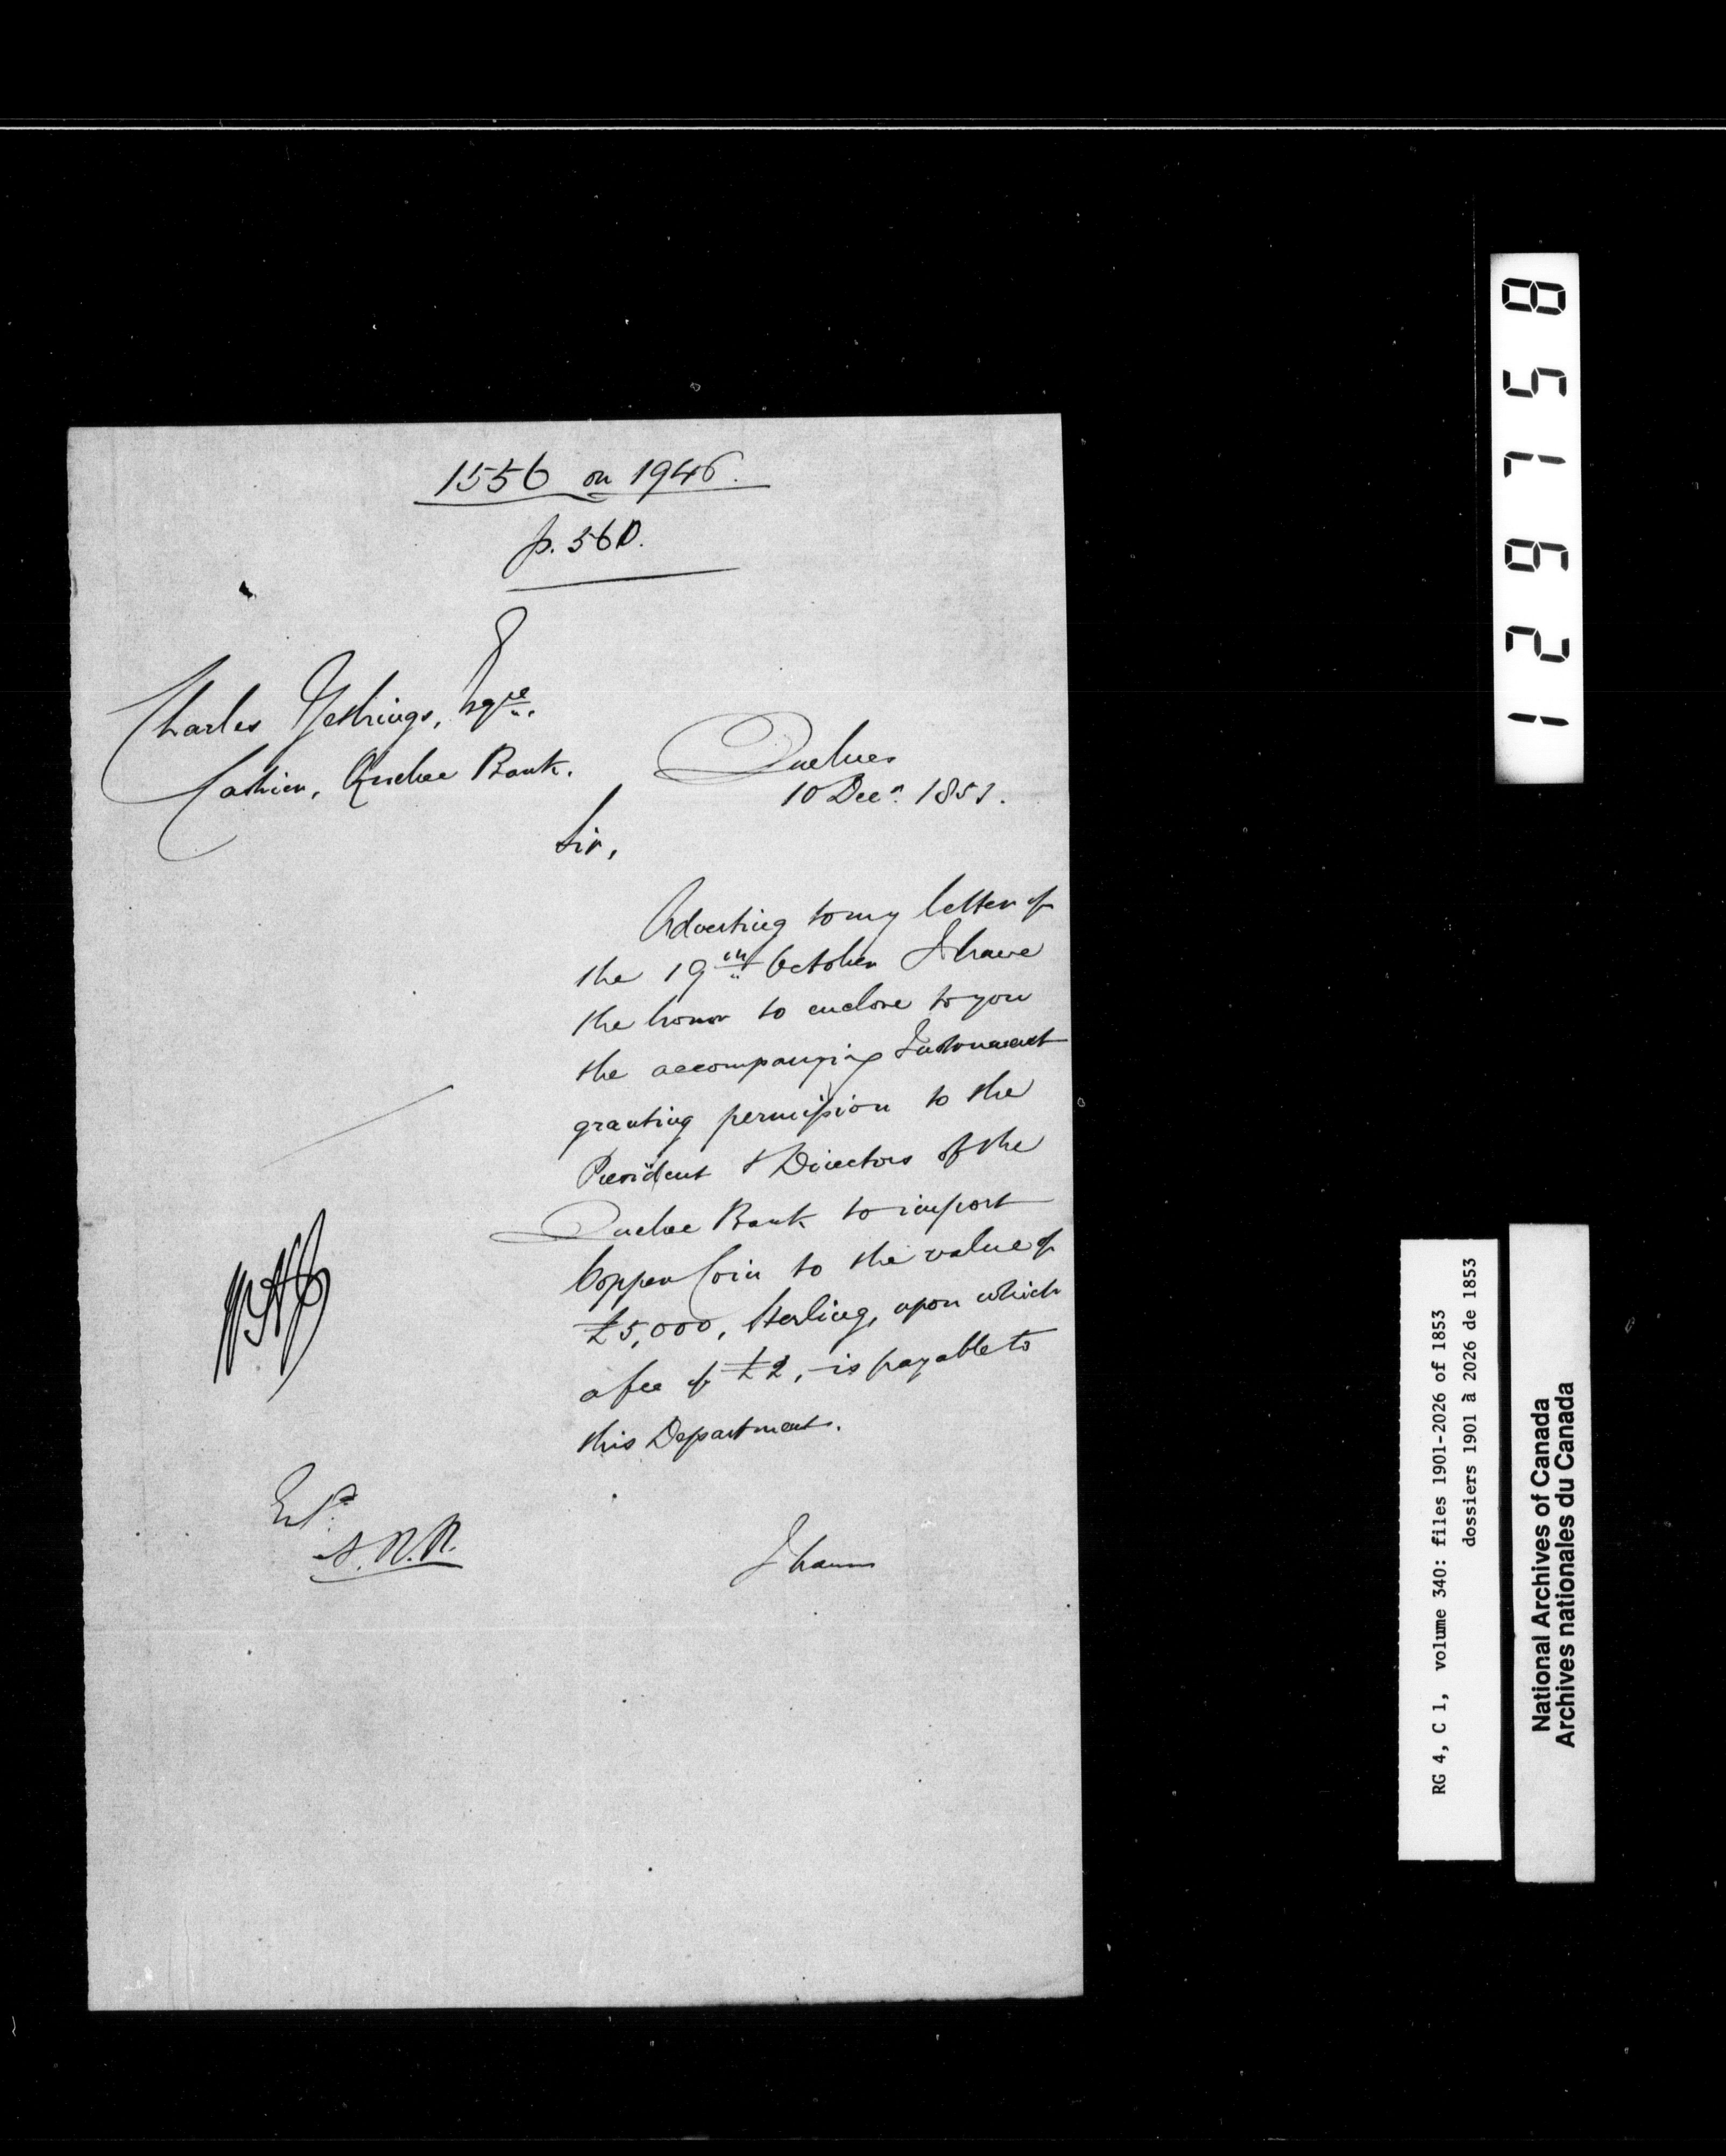 1556 on 1946.
p. 560.
Charles Gethings, Esqre.
Cashier, Quebec Bank.
Quebec
10 Decr. 1853.
Sir,
Adverting to my letter of
the 19th October I have
the honor to enclose to you
the accompanying Instrument
granting permission to the
President & Directors of the
Quebec Bank to import
Copper Coin to the value of
£5,000, Sterling, upon which
a fee of £2, is payable to
this Department.
I have
129758
RG 4, C 1, volume 340: files 1901-2026 of 1853
dossiers 1901 à 2026 de 1853
National Archives of Canada
Archives nationales du Canada